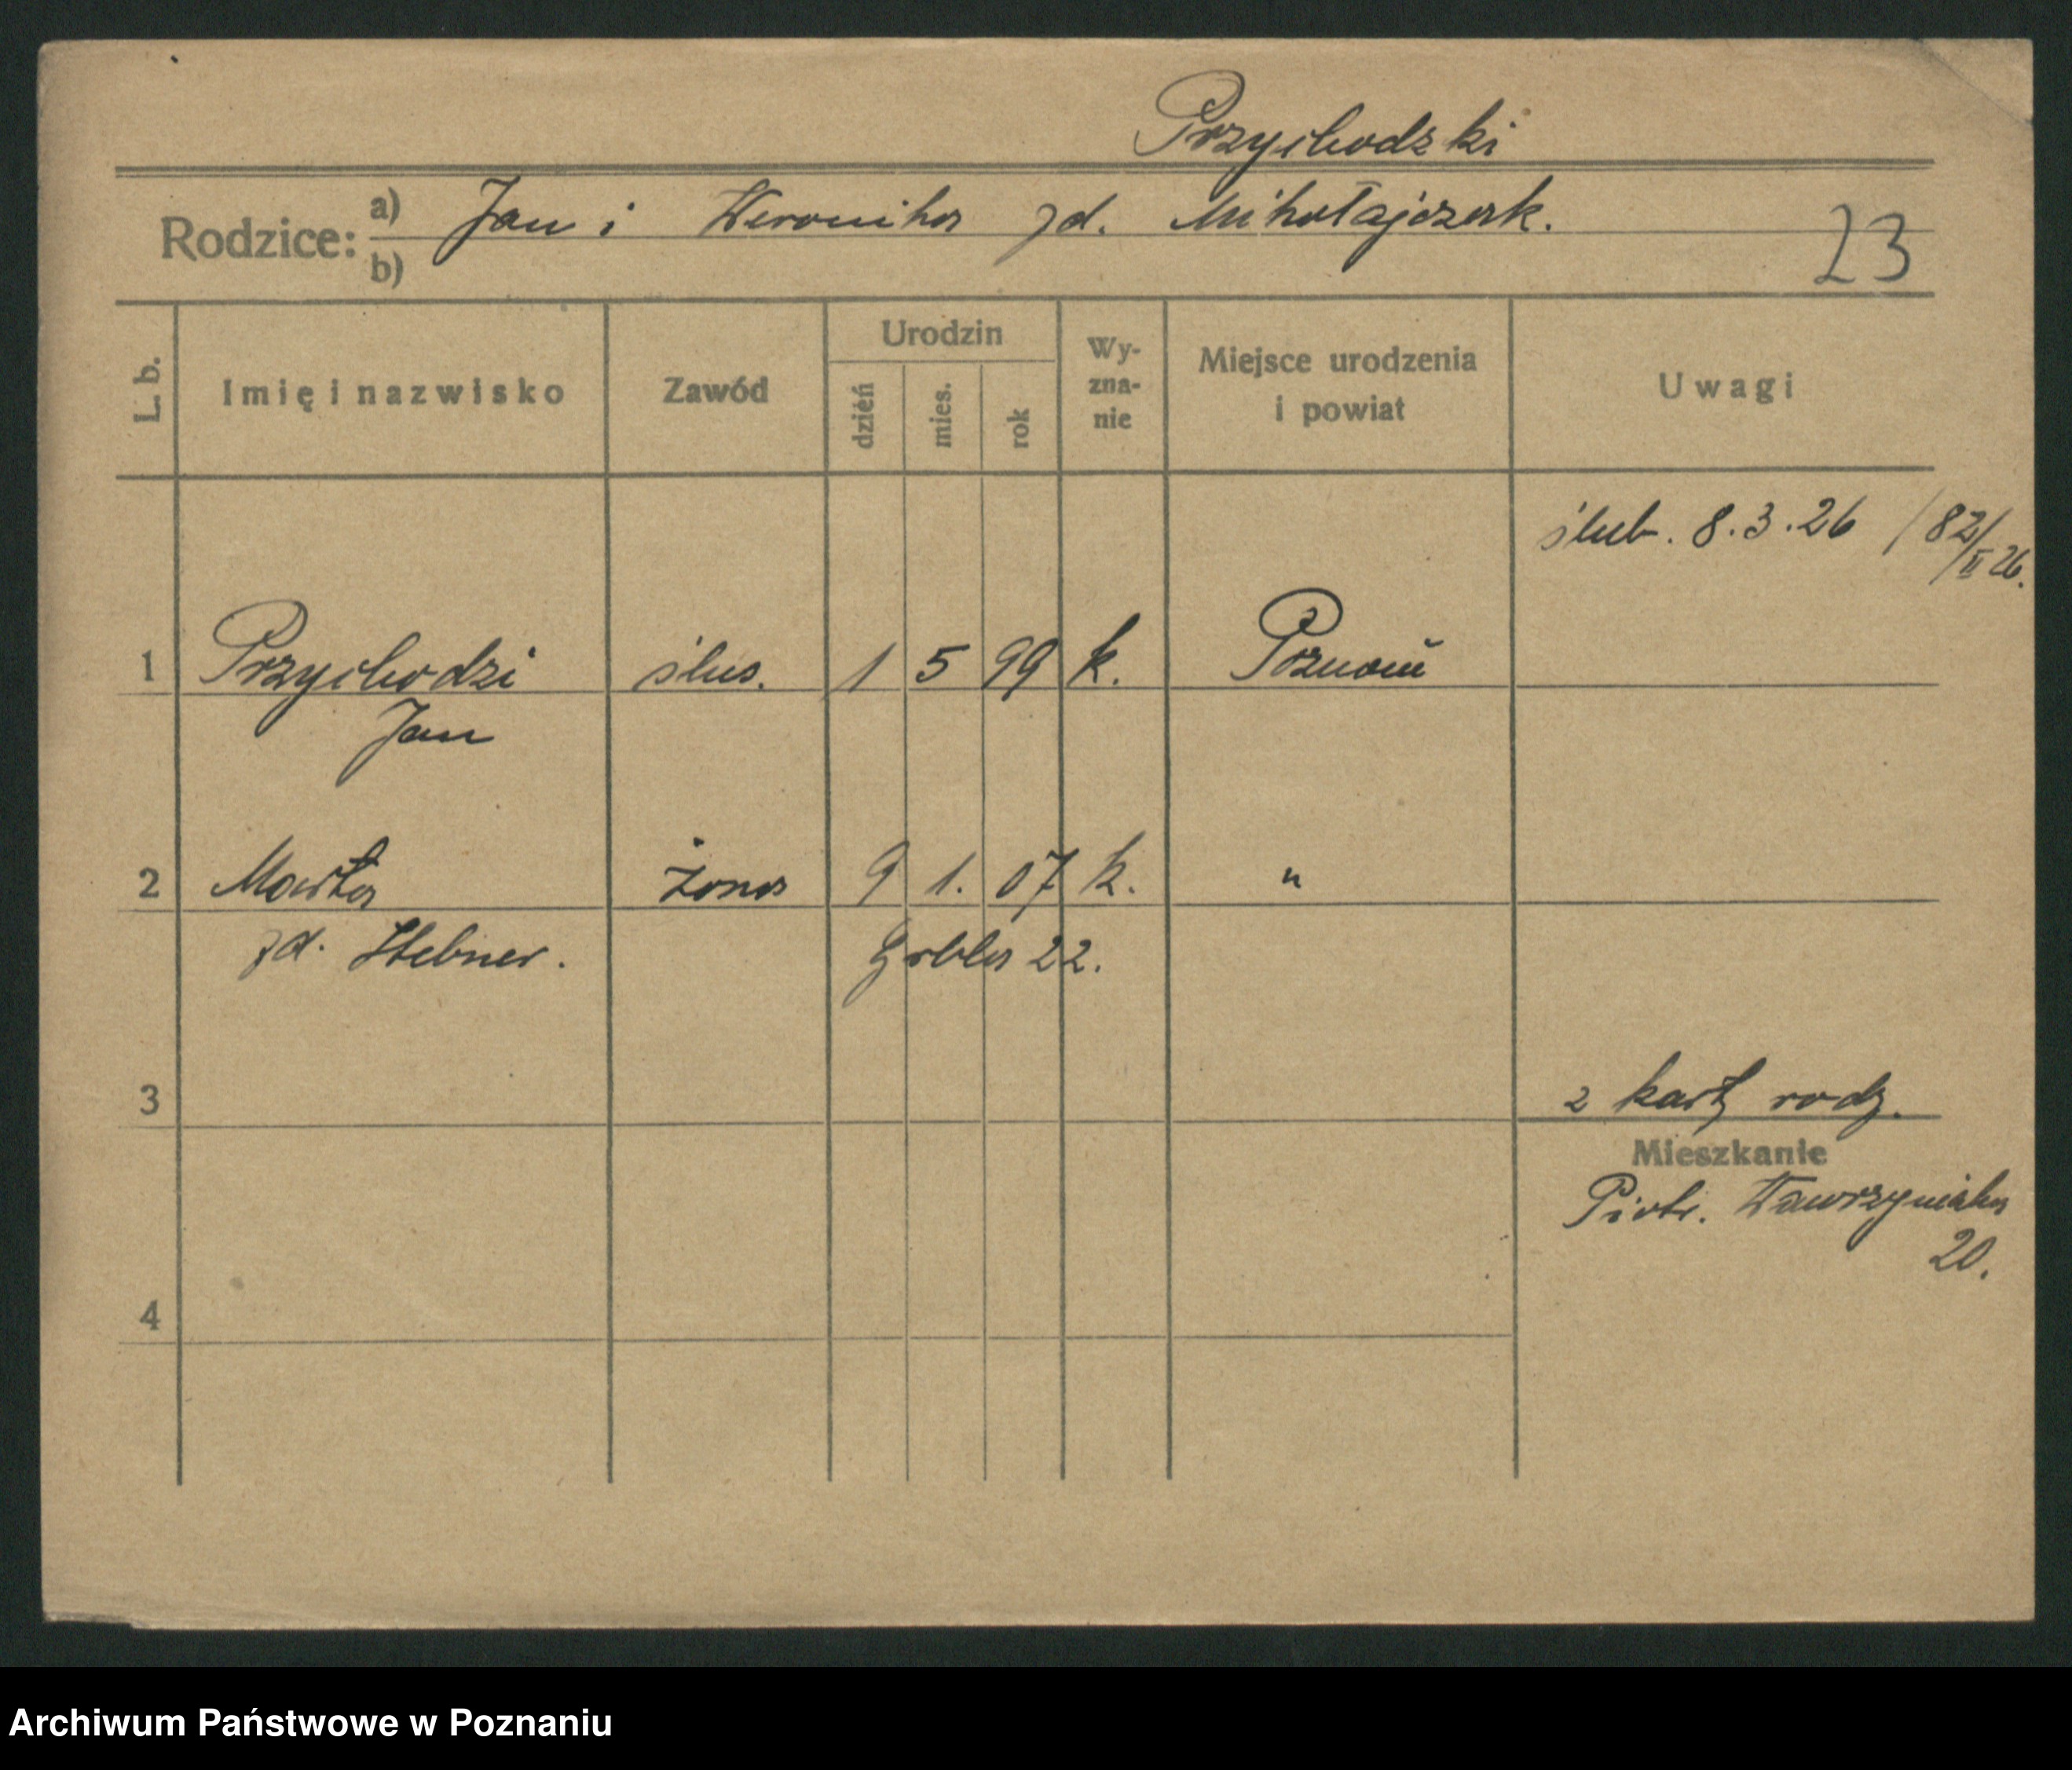 Przychodzki
Rodzice: a) Jan i Weronika zd. Mikołajczak.
b)
23
L. b. Imię i nazwisko Zawód Urodzin dzień mies. rok Wy-zna-nie Miejsce urodzenia i powiat Uwagi
ślub. 8.3.26 / 82/II 26.
1 Przychodzki ślus. 1 5 99 k. Poznań
Jan
2 Marta żona 9 1. 07 k. "
zd. Hebner. Grobla 22.
3 2 karty rodz.
Mieszkanie
Piotr. Wawrzyniaka
20.
4
Archiwum Państwowe w Poznaniu